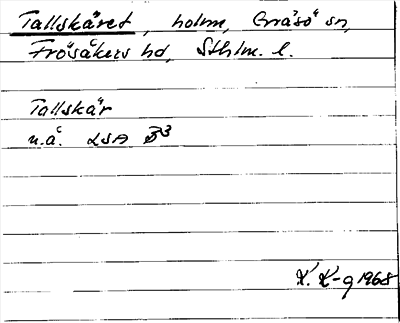 Tallskäret, holm, Gräsö sn,
Frösåkers hd, Sthlm. l.
Tallskär
u.å. LSA B³
K. K-g 1968